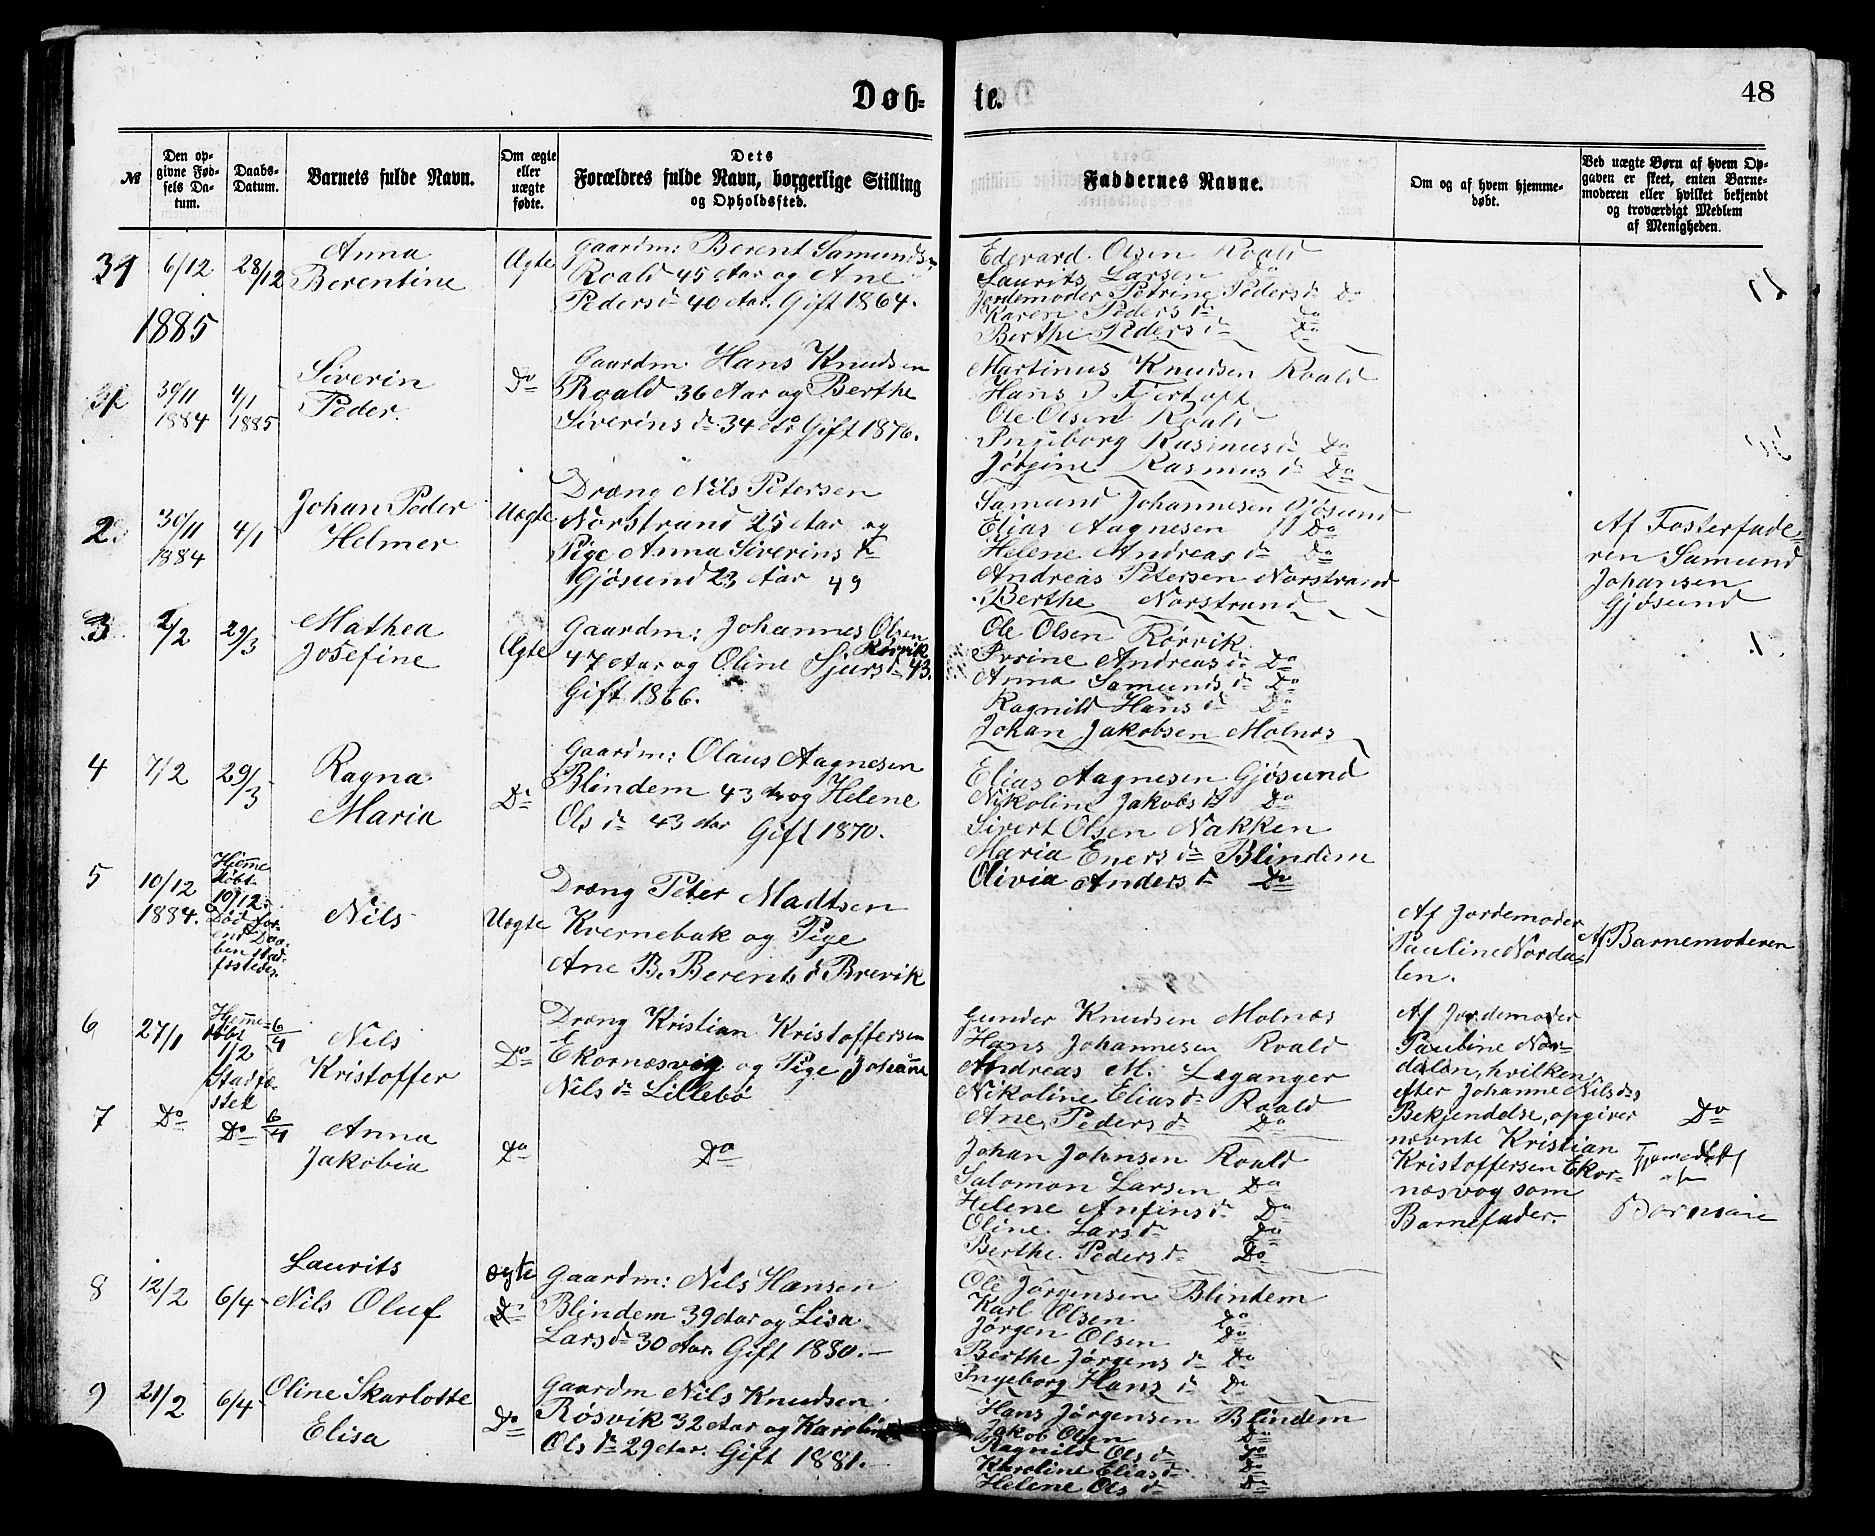 Døb-
te.
48
№
Den op-
givne Fød-
sels Da-
tum.
Daabs-
Datum.
Barnets fulde Navn.
Om ægte
eller
uægte
fødte.
Dets
Forældres fulde Navn, borgerlige Stilling
og Opholdssted.
Faddernes Navne.
Om og af hvem hjemme-
døbt.
Ved uægte Børn af hvem Op-
gaven er skeet, enten Barne-
moderen eller hvilket bekjendt
og troværdigt Medlem
af Menigheden.
31
6/12
28/12
Anna
Berentine
Ægte
Gaardm: Berent Samunds.
Roald 45 Aar og Ane
Peders dr 40 Aar. Gift 1864.
Edevard Olsen Roald
Laurits Larsen Do
Jordemoder Petrine Peders dr Do
Karen Peders dr Do
Berthe Peders dr Do
1885
30/11
1884
4/1
1885
Siverin
Peder.
Do
Gaardm. Hans Knudsen
Roald 36 Aar og Berthe
Siverins dr 34 Gift 1876.
Martinus Knudsen Roald
Hans Fjertoft
Ole Olsen Roald
Ingeborg Rasmus dr Do
Jørgine Rasmus dr Do
2
30/11
1884
4/1
Johan Peder
Helmer
Uægte
Dræng Nils Petersen
Norstrand 25 Aar og
Pige Anna Siverins dr
Gjøsund 23 Aar 49
Samund Johannesen Gjøsund
Elias Aagnesen Do
Helene Andreas dr Do
Andreas Petersen Norstrand
Berthe Norstrand
Af Fosterfade-
ren Samund
Johansen
Gjøsund
3
2/2
29/3
Mathea
Josefine
Ægte
Gaardm: Johannes Olsen
Rørvik
47 Aar og Oline Sjurs dr 43.
Gift 1866.
Ole Olsen Rørvik
Andreas dr Do
Anna Samunds dr Do
Ragnild Hans dr Do
Johan Jakobsen Molnæs
4
7/2
29/3
Ragna
Maria
Do
Gaardm: Olaus Aagnesen
Blindem 43 Ar og Helene
Ols dr 43 Aar Gift 1870.
Elias Aagnesen Gjøsund
Nikoline Jakobs dr Do
Sivert Olsen Nakken
Maria Eners dr Blindem
Olivia Anders dr Do
5
10/12
1884.
Hjeme
døbt
10/12.
Død for-
end Daa-
ben stad-
fæstedes.
Nils
Uægte
Dræng Peter Madtsen
Kvernebak og Pige
Ane B. Berents d Brevik
Af Jordemoder
Pauline Norda-
len.
Af Barnemoderen
6
27/1
Hjeme-
døbt
1/2
Stadfæ-
stet
6/4
Nils
Kristoffer
Do
Dræng Kristian Kristoffersen
Ekornæsvog og Pige Johanne
Nils dr Lillebø
Gunder Knudsen Molnæs
Hans Johannesen Roald
Andreas M. Leganger
Nikoline Elias dr Roald
Ane Peders dr Do
Af Jordemoder
Pauline Nor-
dalen, hvilken
efter Johanne Nilsd's
Bekjendelse, opgiver
nævnte Kristian
Kristoffersen Ekor-
næsvog som
Barnefader.
Do
7
Do
Do
6/4
Anna
Jakobia
Do
Do
Johan Johnsen Roald
Salomon Larsen Do
Helene Anfins dr Do
Oline Lars dr Do
Berthe Peders dr Do
8
12/2
6/4
Laurits
Nils Oluf
Ægte
Do
Gaardm: Nils Hansen
Blindem 39 Aar og Lisa
Lars dr 30 Aar. Gift 1880.
Ole Jørgensen Blindem
Karl Olsen Do
Jørgen Olsen Do
Berthe Jørgens dr Do
Ingeborg Hans dr Do
9
21/2
6/4
Oline Skarlotte
Elisa
Do
Gaardm Nils Knudsen
Røsvik 32 Aar og Karolin
Ols dr 29 Aar. Gift 1881.
Hans Jørgensen Blindem
Jakob Olsen Do
Ragnild Ols dr Do
Karoline Elias dr Do
Helene Ols dr Do